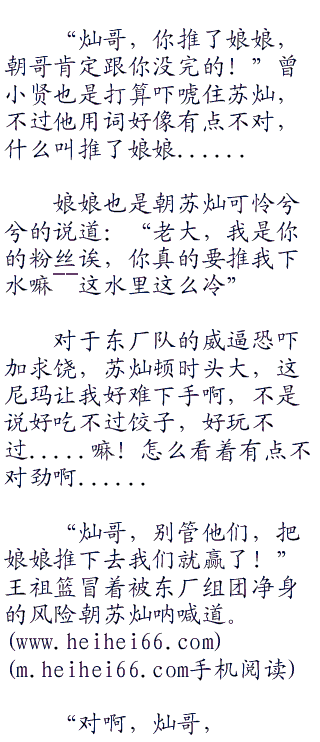 “灿哥，你推了娘娘，
朝哥肯定跟你没完的！”曾
小贤也是打算吓唬住苏灿，
不过他用词好像有点不对，
什么叫推了娘娘......
娘娘也是朝苏灿可怜兮
兮的说道：“老大，我是你
的粉丝诶，你真的要推我下
水嘛——这水里这么冷”
对于东厂队的威逼恐吓
加求饶，苏灿顿时头大，这
尼玛让我好难下手啊，不是
说好吃不过饺子，好玩不
过.....嘛！怎么看着有点不
对劲啊......
“灿哥，别管他们，把
娘娘推下去我们就赢了！”
王祖篮冒着被东厂组团净身
的风险朝苏灿呐喊道。
(www.heihei66.com)
(m.heihei66.com手机阅读)
“对啊，灿哥，